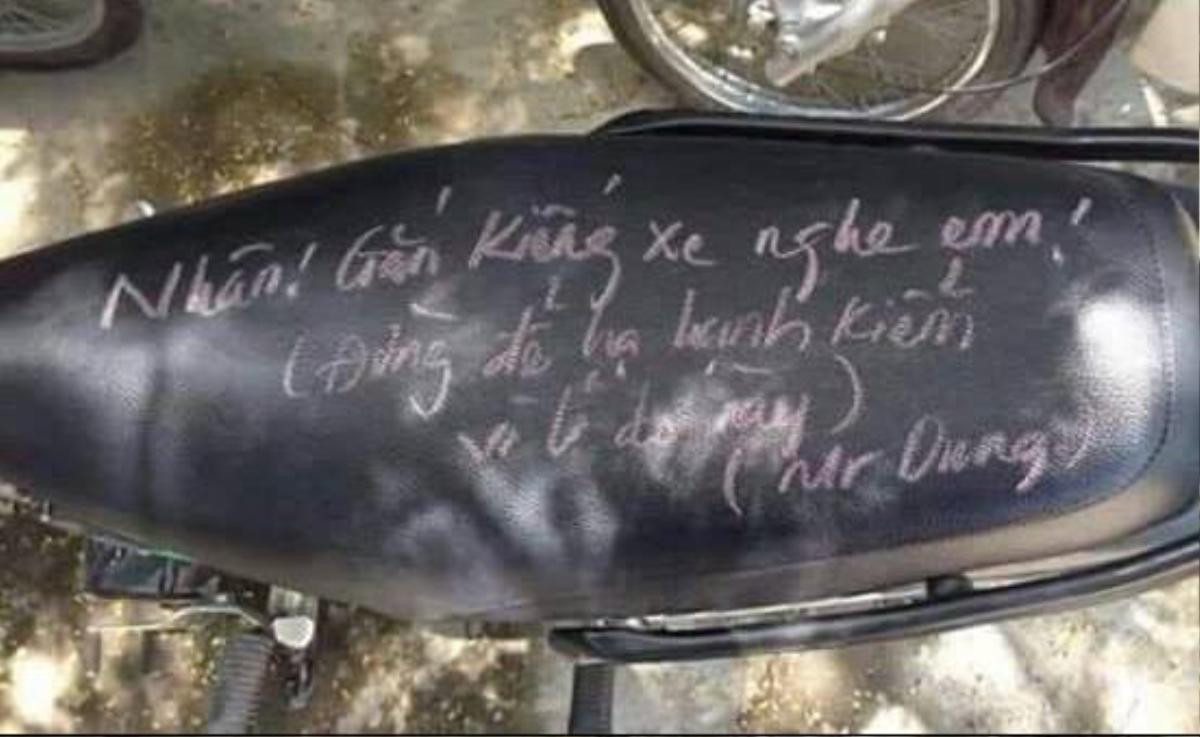 Nhân! Gắn Kiếng xe nghe em!
(Đừng để hạ hạnh kiểm
vì lí do này)
(Mr Dung)